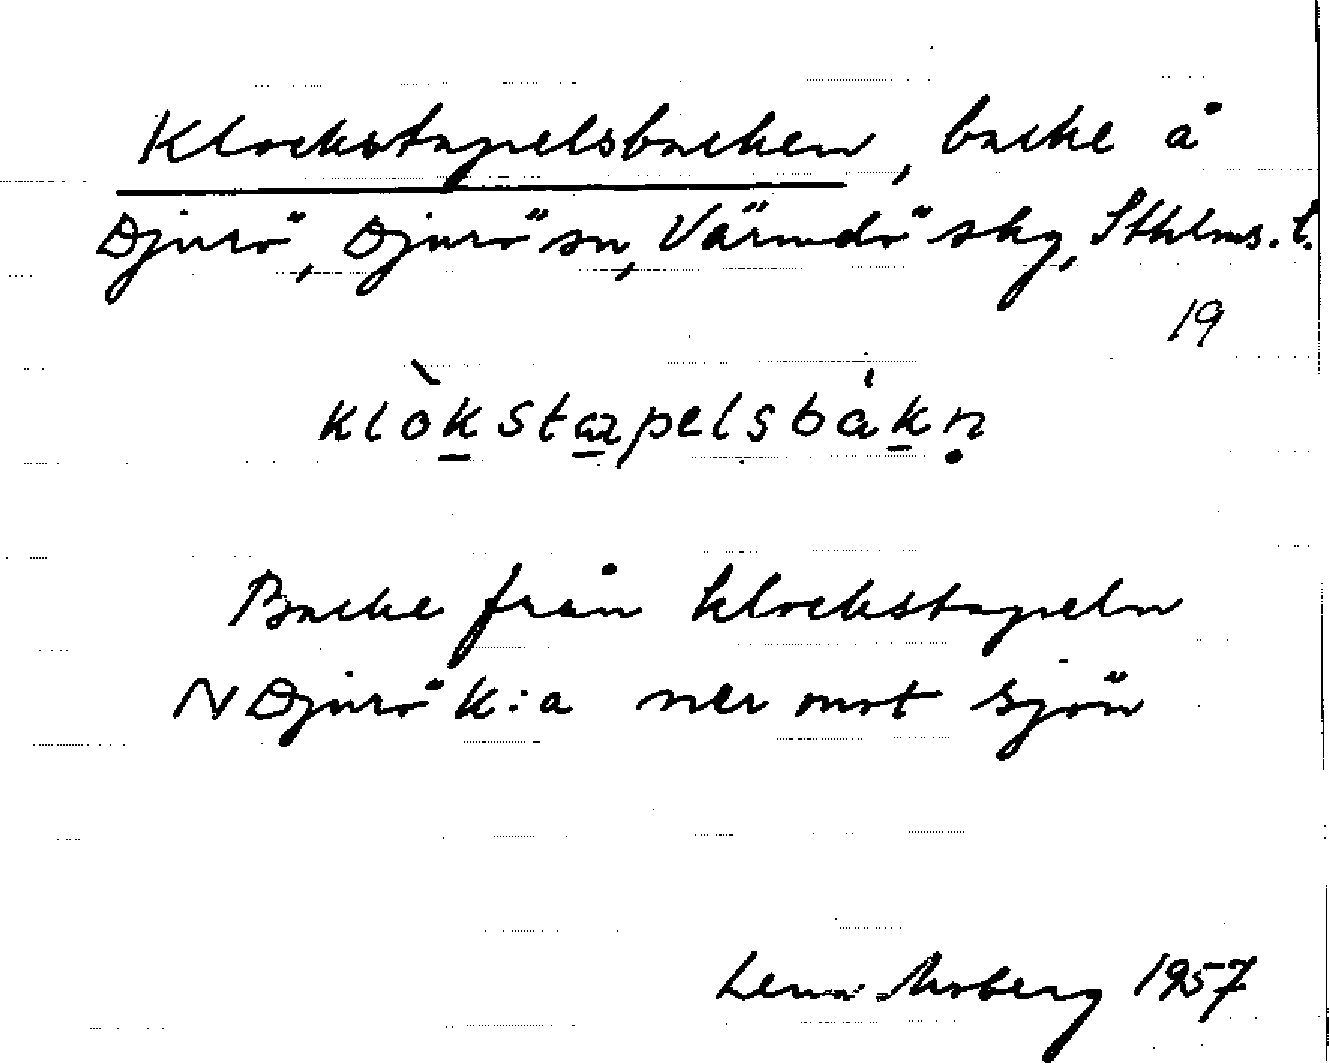 Klockstapelsbacken, backe å
Djurö, Djurö sn, Värmdö skg, Sthlms. l.
19
klòkstapelsbákn̥
Backe från klockstapeln
N Djurö k:a ner mot sjön
Lena Moberg 1957